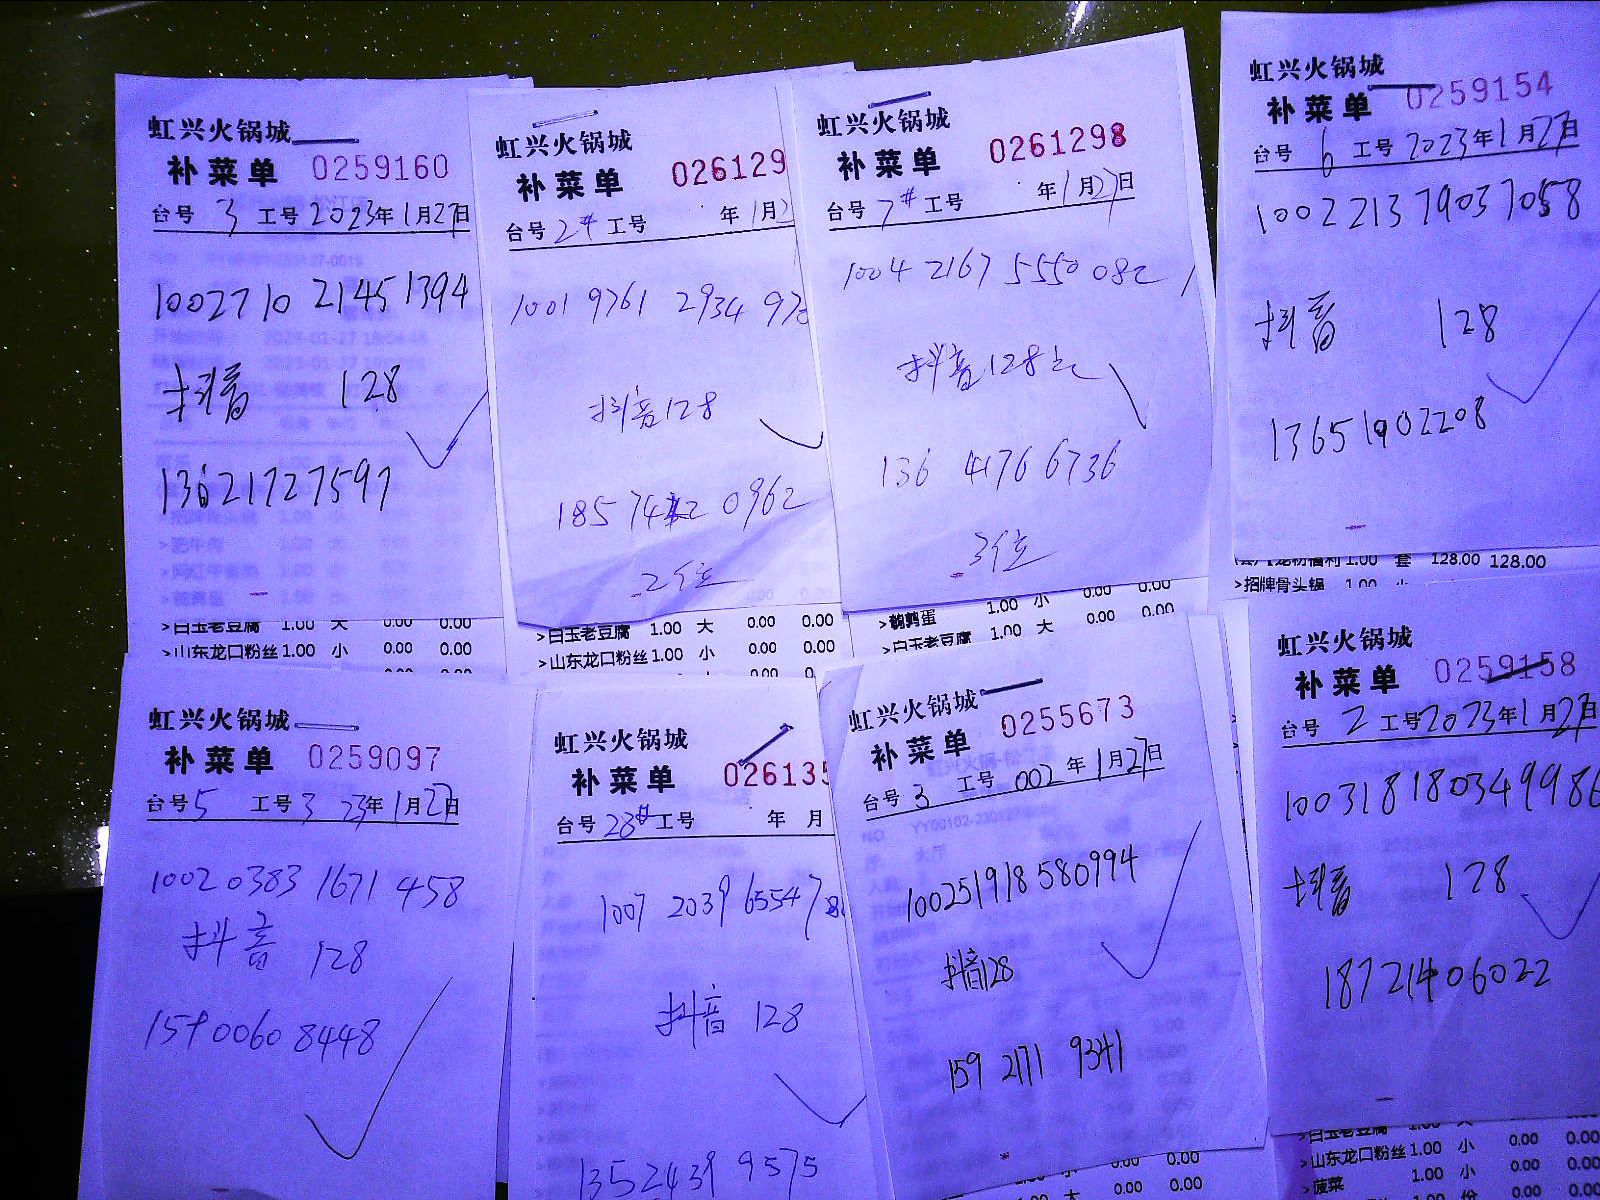 虹兴火锅城
补菜单 0259160
台号 3 工号 2023年1月27日
100271021451394
抖音 128
13621727597
>白玉老豆腐 1.00 大 0.00 0.00
>山东龙口粉丝 1.00 小 0.00 0.00
虹兴火锅城
补菜单 026129
台号 2# 工号 年1月2
1001 9761 2934 97
抖音128
0962
2位
>白玉老豆腐 1.00 大 0.00 0.00
>山东龙口粉丝 1.00 小 0.00 0.00
虹兴火锅城
补菜单 0261298
台号 7# 工号 年1月27日
1004 2167 5550 082 1
抖音128元
136 4176 6736
3位
>鹌鹑蛋 1.00 小 0.00 0.00
>白玉老豆腐 1.00 大 0.00 0.00
虹兴火锅城
补菜单 0259154
台号 6 工号 2023年1月27日
100221379037058
抖音 128
13651902208
1.00 套 128.00 128.00
>招牌骨头锅 1.00 小
虹兴火锅城
补菜单 0259097
台号 5 工号 3 23年1月27日
10020383 1671 458
抖音 128
159 0060 8448
虹兴火锅城
补菜单 026135
台号 28# 工号 年 月
1007 2039 65547
抖音 128
1352439 9575
虹兴火锅城
补菜单 0255673
台号 3 工号 002 年1月27日
100251918580994
抖音128
159 2171 9341
0.00 0.00
1.00 大 0.00 0.00
虹兴火锅城
补菜单 0259158
台号 2 工号 2023年1月27日
100318180349986
抖音 128
18721406022
>白玉老豆腐 1.00 大 0.00 0.00
>山东龙口粉丝 1.00 小 0.00 0.00
>菠菜 1.00 小 0.00 0.00